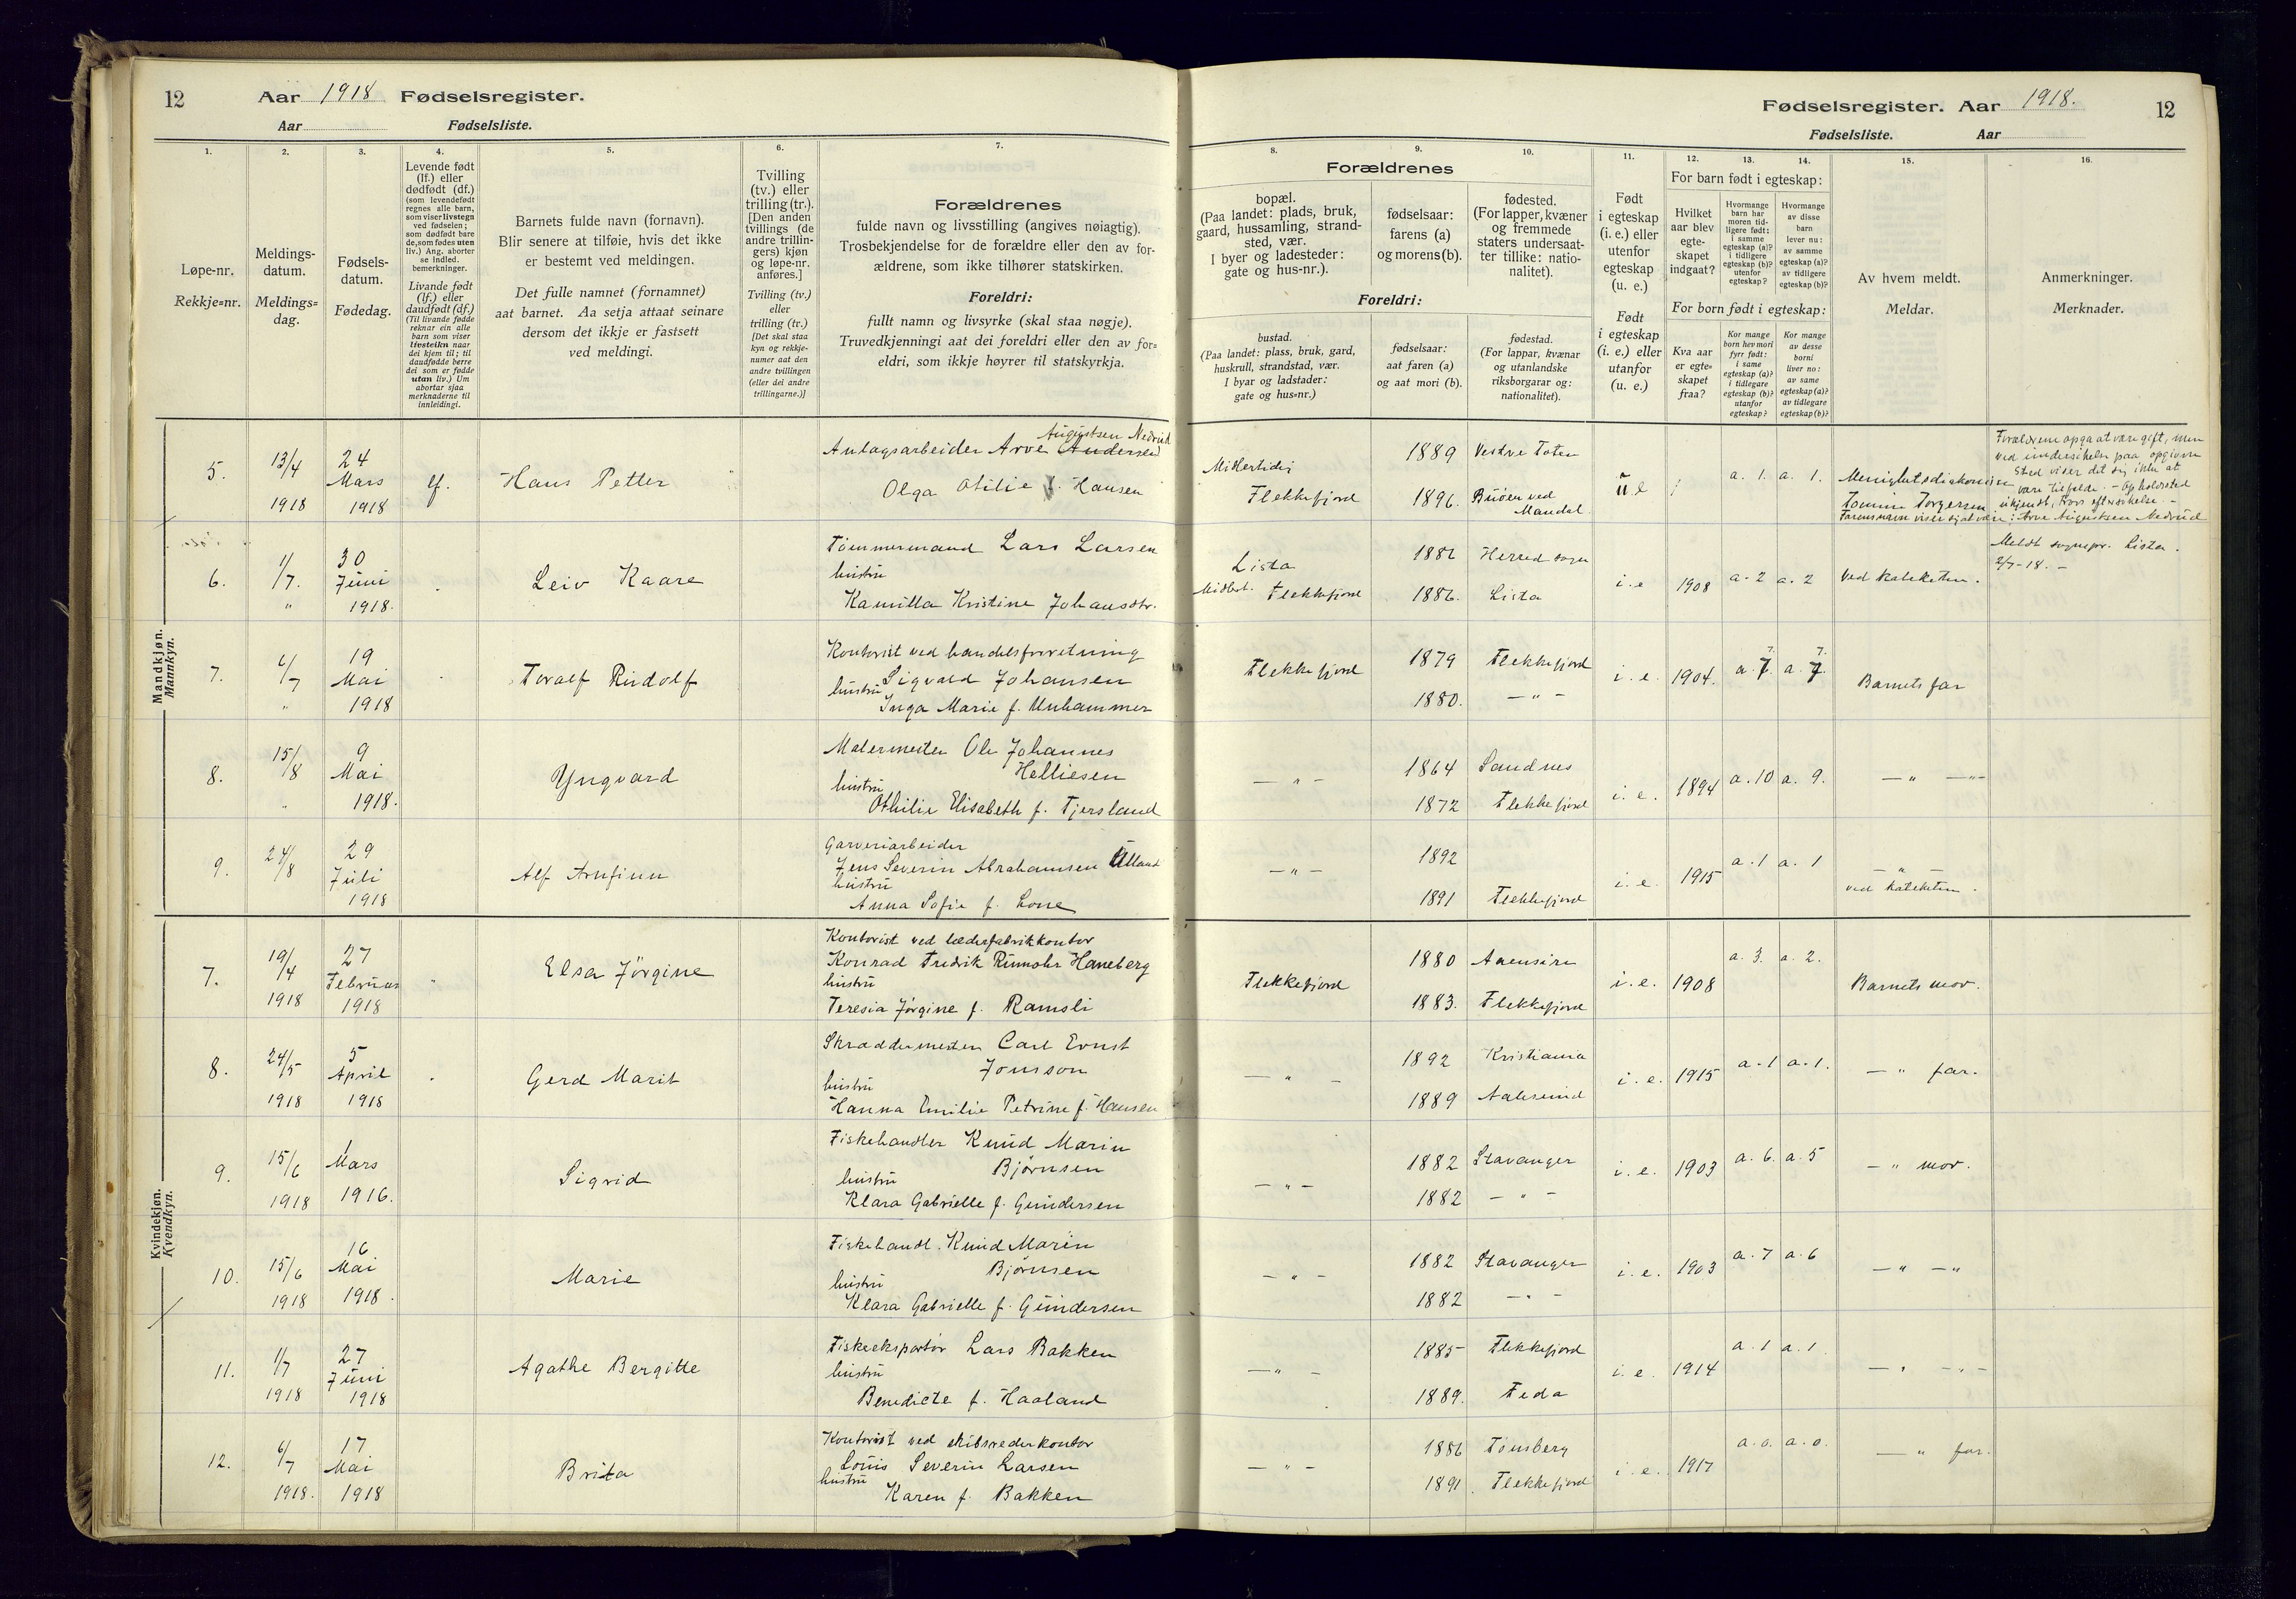 12 Aar 1918 Fødselsregister.
Aar Fødselsliste.
Fødselsregister. Aar 1918. 12
Fødselsliste. Aar
1. 2. 3. 4. 5. 6. 7.
8. 9. 10. 11. 12. 13. 14. 15. 16.
Løpe-nr.
Rekkje=nr.
Meldings-
datum.
Meldings=
dag.
Fødsels-
datum.
Fødedag.
Levende født
(lf.) eller
dødfødt (df.)
(som levendefødt
regnes alle barn,
som viser livstegn
ved fødselen;
som dødfødt bare
de, som fødes uten
liv.) Ang. aborter
se indled.
bemerkninger.
Livande født
(lf.) eller
daudfødt (df.)
(Til livande fødde
reknar ein alle
barn som viser
livsteikn naar
dei kjem til; til
daudfødde berre
dei som er fødde
utan liv.) Um
abortar sjaa
merknaderne til
innleidingi.
Barnets fulde navn (fornavn).
Blir senere at tilføie, hvis det ikke
er bestemt ved meldingen.
Det fulle namnet (fornamnet)
aat barnet. Aa setja attaat seinare
dersom det ikkje er fastsett
ved meldingi.
Tvilling
(tv.) eller
trilling (tr.).
[Den anden
tvillings (de
andre trillin-
gers) kjøn
og løpe-nr.
anføres.]
Tvilling (tv.)
eller
trilling (tr.)
[Det skal staa
kyn og rekkje-
numer aat den
andre tvillingen
(eller dei andre
trillingarne.)]
Forældrenes
fulde navn og livsstilling (angives nøiagtig).
Trosbekjendelse for de forældre eller den av for-
ældrene, som ikke tilhører statskirken.
Foreldri:
fullt namn og livsyrke (skal staa nøgje).
Truvedkjenningi aat dei foreldri eller den av for=
eldri, som ikkje høyrer til statskyrkja.
Forældrenes
bopæl.
(Paa landet: plads, bruk,
gaard, hussamling, strand-
sted, vær.
I byer og ladesteder:
gate og hus-nr.).
fødselsaar:
farens (a)
og morens (b).
fødested.
(For lapper, kvæner
og fremmede
staters undersaat-
ter tillike: natio-
nalitet).
Foreldri:
bustad.
(Paa landet: plass, bruk, gard,
huskrull, strandstad, vær.
I byar og ladstader:
gate og hus=nr.)
fødselsaar:
aat faren (a)
og aat mori (b).
fødestad.
(For lappar, kvænar
og utanlandske
riksborgarar og:
nationalitet).
Født
i egteskap
(i. e.) eller
utenfor
egteskap
(u. e.)
Født
i egteskap
(i. e.) eller
utanfor
(u. e.)
For barn født i egteskap:
Hvilket
aar blev
egte-
skapet
indgaat?
Hvormange
barn har
moren tid-
ligere født:
i samme
egteskap (a)?
i tidligere
egteskap (b)?
utenfor
egteskap?
Hvormange
av disse
barn
lever nu:
av samme
egteskap (a)?
av tidligere
egteskap (b)?
For born født i egteskap:
Kva aar
er egte-
skapet
fraa?
Kor mange
born hev mori
fyrr født:
i same
egteskap (a)?
i tidlegare
egteskap (b)?
utanfor
egteskap?
Kor mange
av desse
borni
liver no:
av same
egteskap (a)?
av tidlegare
egteskap (b)?
Av hvem meldt.
Meldar.
Anmerkninger.
Merknader.
Mandkjøn.
Mannkyn.
5. 13/4 1918 24 Mars 1918 lf. Hans Petter
Anlagsarbeider Arve Andersen Augustsen Nedrud
Olga Otilie Hansen
Midlertidig
Flekkefjord
1889 Vestre Toten
1896. Buøen ved
Mandal.
u e a. 1. a. 1. Menighetsdiakonissen
Tomine Torgersen
Forældrene opga at være gift, men
ved undersøkelse paa opgivne
sted viser det sig ikke at
være tilfælde. - Opholdssted
ukjendt, trods eftersøkelse. -
Farens navn viser sig at være: Arve Augustsen Nedrud
6. 1/7. " 30 Juni 1918. Leiv Kaare
Tømmermand Lars Larsen
hustru
Kamilla Kristine Johansdtr.
Lista
Midlert. Flekkefjord
1881 Herred sogn
1886. Lista
i. e 1908 a. 2 a. 2 Ved kateketen.
Meldt sognepr. Lista.
2/7-18. -
7. 6/7 " 19 Mai 1918 Toralf Rudolf
Kontorist ved handelsforretning
Sigvald Johansen
hustru
Inga Marie f. Unhammer
Flekkefjord
1879 Flekkefjord
1880. - " -
i. e. 1904. a. 7. a. 7. Barnets far
8. 15/8 " 9 Mai 1918. Yngvard
Malermester Ole Johannes
Helliesen
hustru
Othilie Elisabeth f. Tjersland
- " -
1864 Sandnes
1872 Flekkefjord
i. e. 1894 a. 10 a. 9. - " - "-
9. 24/8 29 Juli 1918 Alf Arnfinn
Garveriarbeider
Jens Severin Abrahamsen Ulland
hustru
Anna Sofie f. Lone
- " -
1892
1891 Flekkefjord
i. e. 1915 a. 1 a. 1 - " -
ved kateketen.
Kvindekjøn.
Kvendkyn.
7. 19/4 1918 27 Februar 1918 " Elsa Jörgine
Kontorist ved læderfabrikkontor
Konrad Fredrik Rumohr Haneberg
hustru
Teresia Jörgine f. Ramsli
Flekkefjord
1880 Aaensire
1883. Flekkefjord
i. e. 1908 a. 3. a. 2. Barnets mor.
8. 24/5 1918 5 April 1918 Gerd Marit
Skræddermester Carl Ernst
Jonsson
hustru
Hanna Emilie Petrine f. Hansen
- " -
1892 Kristiania
1889 Aalesund
i. e. 1915 a. 1 a. 1. - " far.
9. 15/6 1918 1 Mars 1916. Sigrid
Fiskehandler Knud Marin
Bjørnsen
hustru
Klara Gabrielle f. Gundersen
- " -
1882 Stavanger
1882 - " -
i. e. 1903 a. 6. a. 5 - " mor.
10. 15/6 1918 16 Mai 1918. Marie
Fiskehandl. Knud Marin
Bjørnsen
hustru
Klara Gabrielle f. Gundersen
- " -
1882 Stavanger
1882 - " -
i. e. 1903 a. 7 a. 6 - " - "
11. 1/7 1918 27 Juni 1918 Agathe Bergitte
Fiskeeksportør Lars Bakken
hustru
Benedicte f. Haaland
- " -
1885 Flekkefjord
1889. Feda
i. e. 1914 a. 1 a. 1. - " - " -
12. 6/7 1918. 17 Mai 1918 Brita
Kontorist ved skibsrederkontor
Louis Severin Larsen
hustru
Karen f. Bakken
- " -
1886 Tønsberg
1891. Flekkefjord
i. e. 1917 a. o. a. o. - " far.